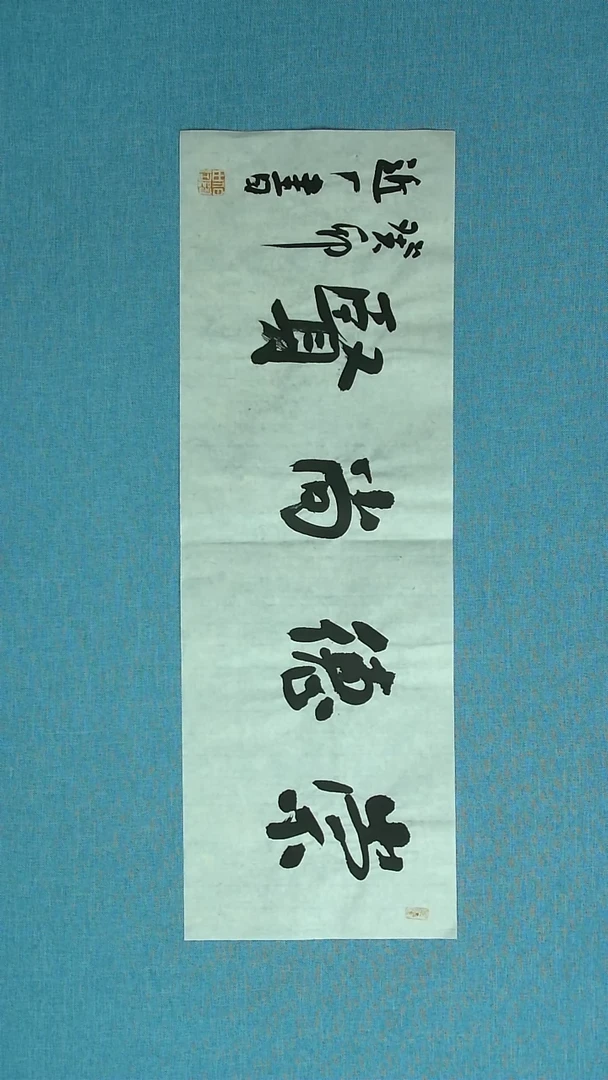 崇德尚賢
癸卯
近厂書